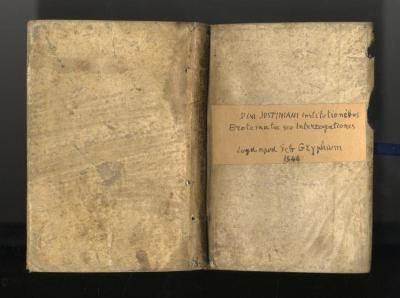 Divi JUSTINIANI institutionibus
Erotemata seu Interrogationes
Lugd. apud Seb Gryphium
1544